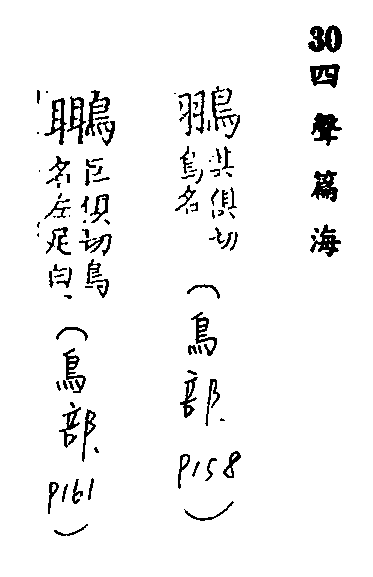 30四聲篇海
其俱切
鳥名
(鳥部、P158)
巨俱切鳥
名左足白、
(鳥部、P161)